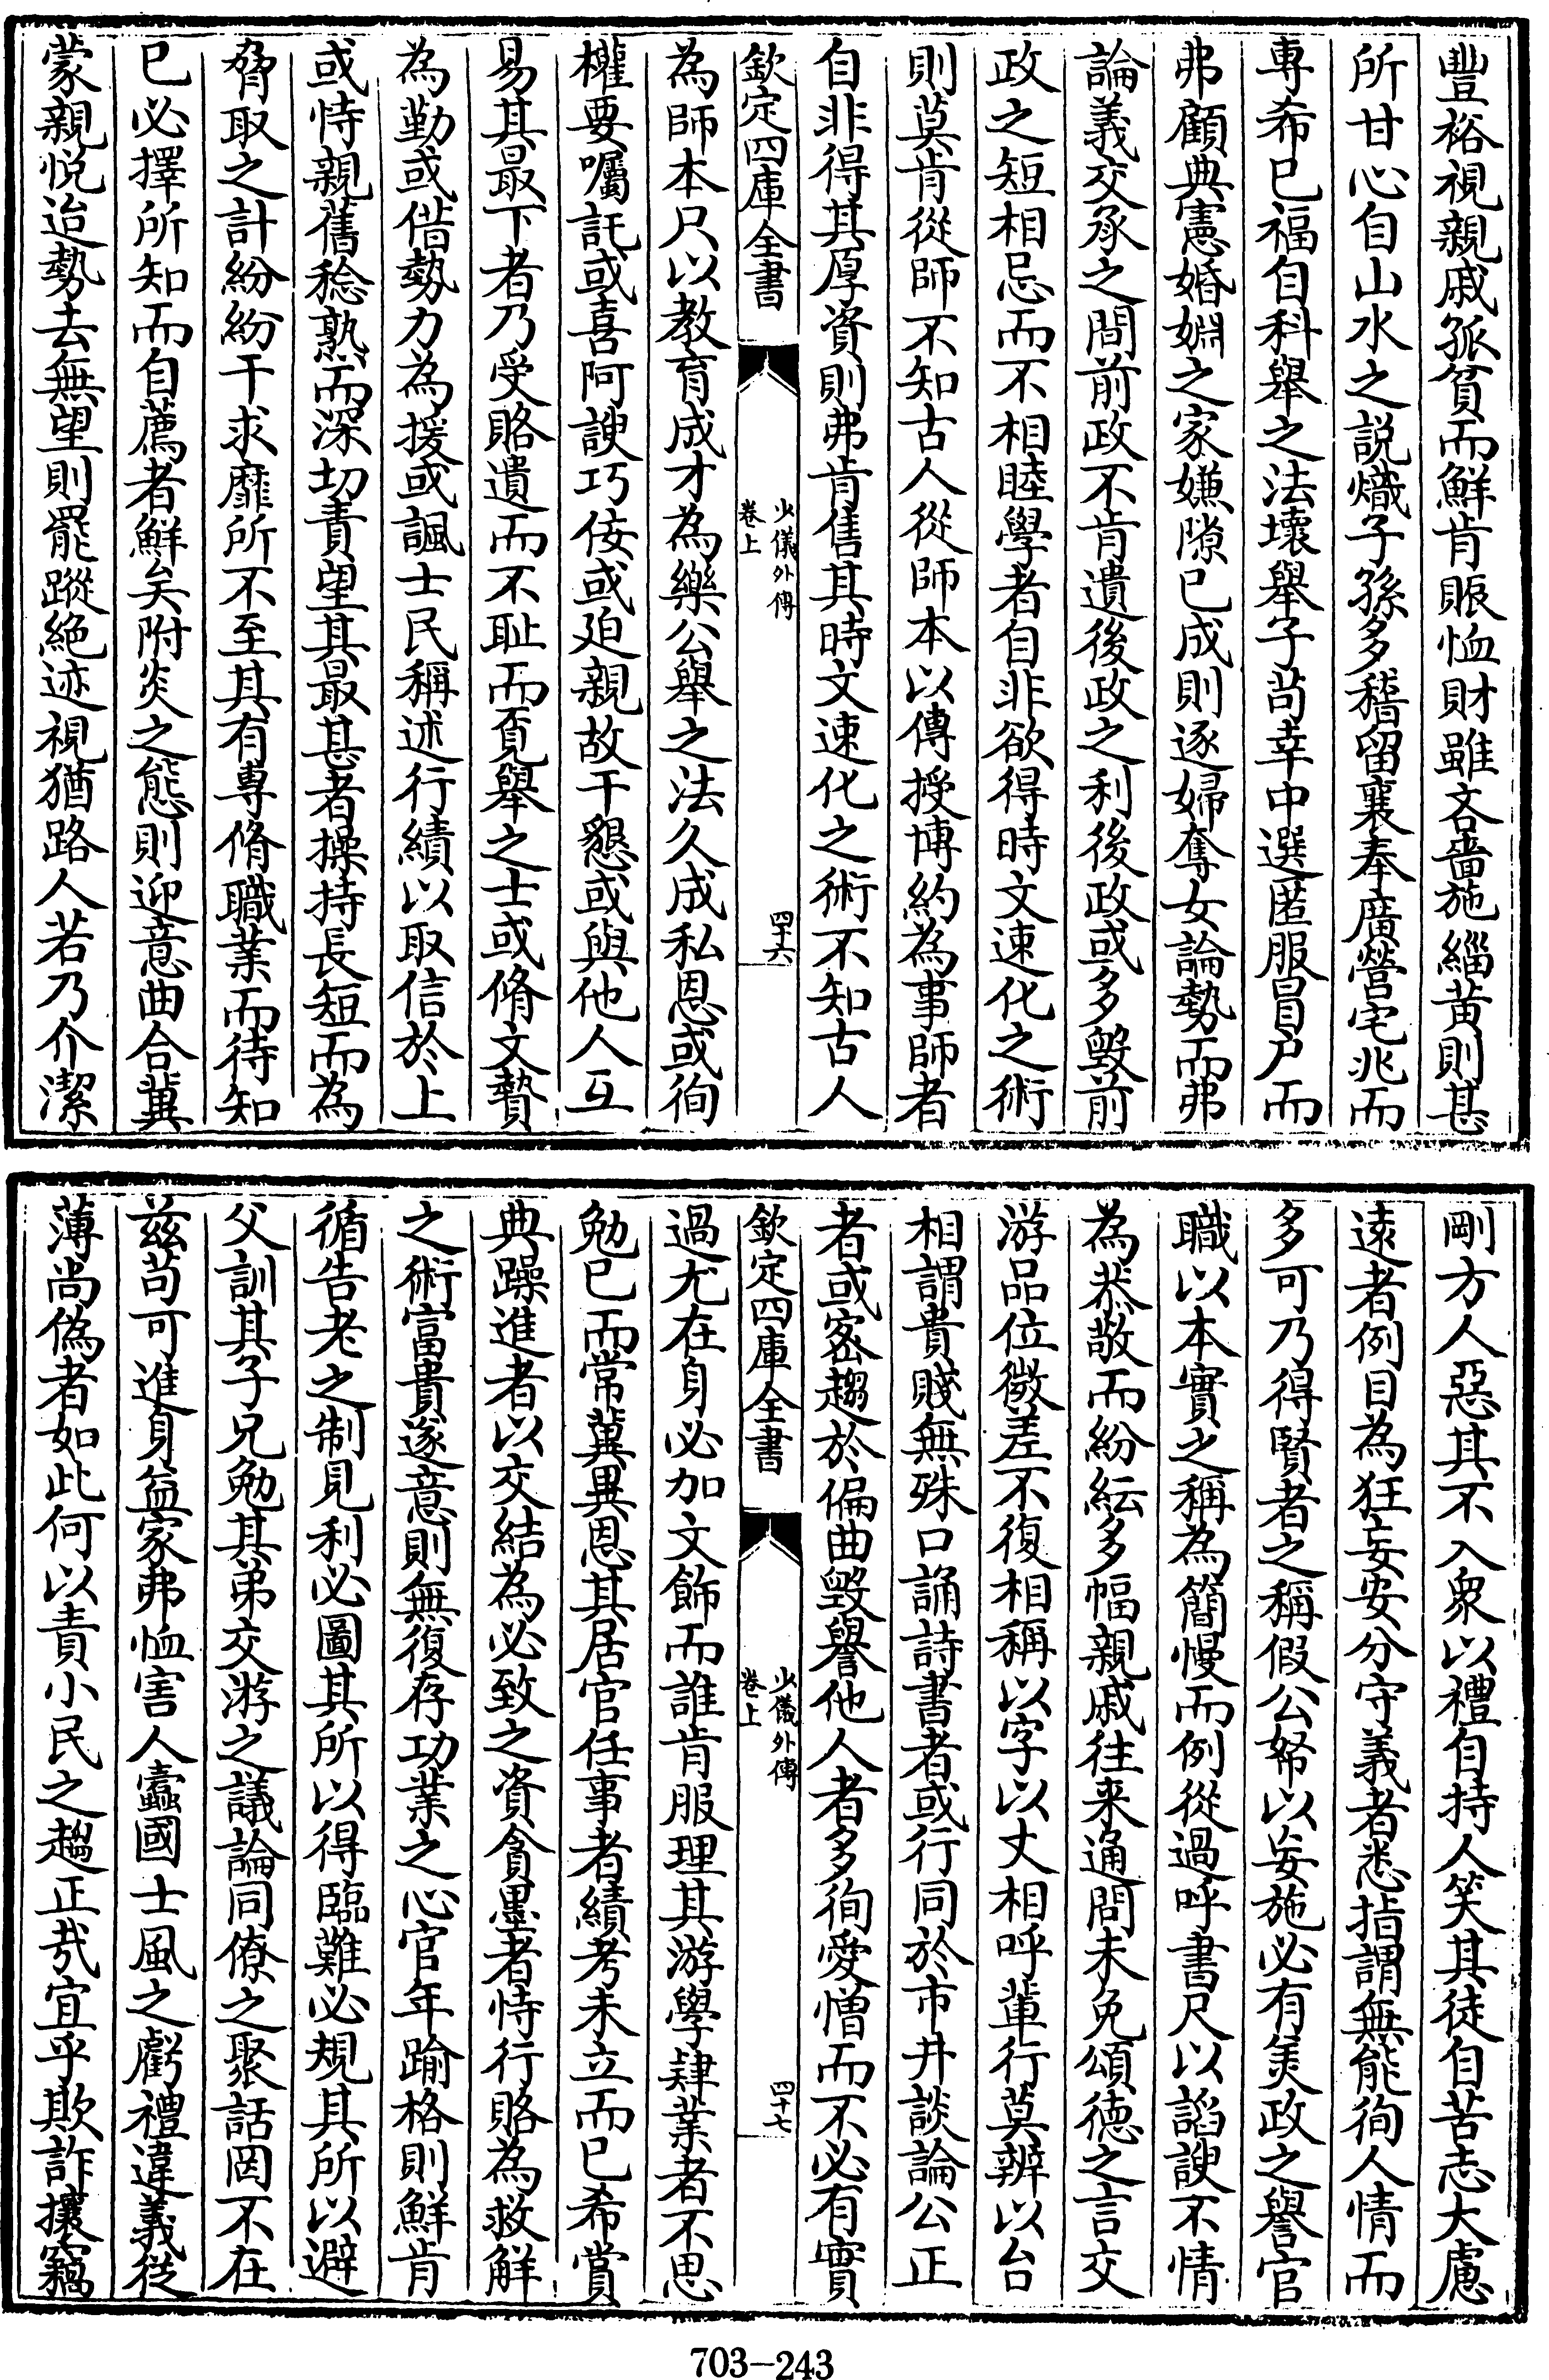 豐裕視親戚孤貧而鮮肯賑恤財雖吝嗇施緇黄則甚
所甘心自山水之説熾子孫多稽留襄奉廣營宅兆而
專希已福自科舉之法壞舉子苟幸中選匿服冒户而
弗顧典憲婚婣之家嫌隙已成則逐婦奪女論勢而弗
論義交承之間前政不肯遺後政之利後政或多毀前
政之短相忌而不相睦學者自非欲得時文速化之術
則莫肯從師不知古人從師本以傳授博約為事師者
自非得其厚資則弗肯售其時文速化之術不知古人
欽定四庫全書
少儀外傳
卷上
四十六
為師本只以教育成才為樂公舉之法久成私恩或徇
權要囑託或喜阿諛巧佞或廹親故干懇或與他人互
易其最下者乃受賂遺而不耻而覔舉之士或脩文贄
為勤或借勢力為援或諷士民稱述行績以取信於上
或恃親舊稔熟而深切責望其最甚者操持長短而為
脅取之計紛紛干求靡所不至其有專脩職業而待知
已必擇所知而自薦者鮮矣附炎之態則迎意曲合冀
蒙親悦迨勢去無望則罷蹤絶迹視猶路人若乃介潔
剛方人惡其不入衆以禮自持人笑其徒自苦志大慮
遠者例目為狂妄安分守義者悉指謂無能徇人情而
多可乃得賢者之稱假公帑以妄施必有美政之譽官
職以本實之稱為簡慢而例從過呼書尺以謟諛不情
為恭敬而紛紜多幅親戚往来通問未免頌德之言交
游品位微差不復相稱以字以丈相呼輩行莫辨以台
相謂貴賤無殊口誦詩書者或行同於市井談論公正
者或密趨於偏曲毀譽他人者多徇愛憎而不必有實
欽定四庫全書
少儀外傳
卷上
四十七
過尤在身必加文飾而誰肯服理其游學肄業者不思
勉已而常冀異恩其居官任事者績考未立而已希賞
典躁進者以交結為必致之資貪墨者恃行賂為救解
之術富貴遂意則無復存功業之心官年踰格則鮮肯
循告老之制見利必圖其所以得臨難必規其所以避
父訓其子兄勉其弟交游之議論同僚之聚話罔不在
兹苟可進身益家弗恤害人蠹國士風之虧禮違義從
薄尚偽者如此何以責小民之趨正哉宜乎欺詐攘竊
703-243